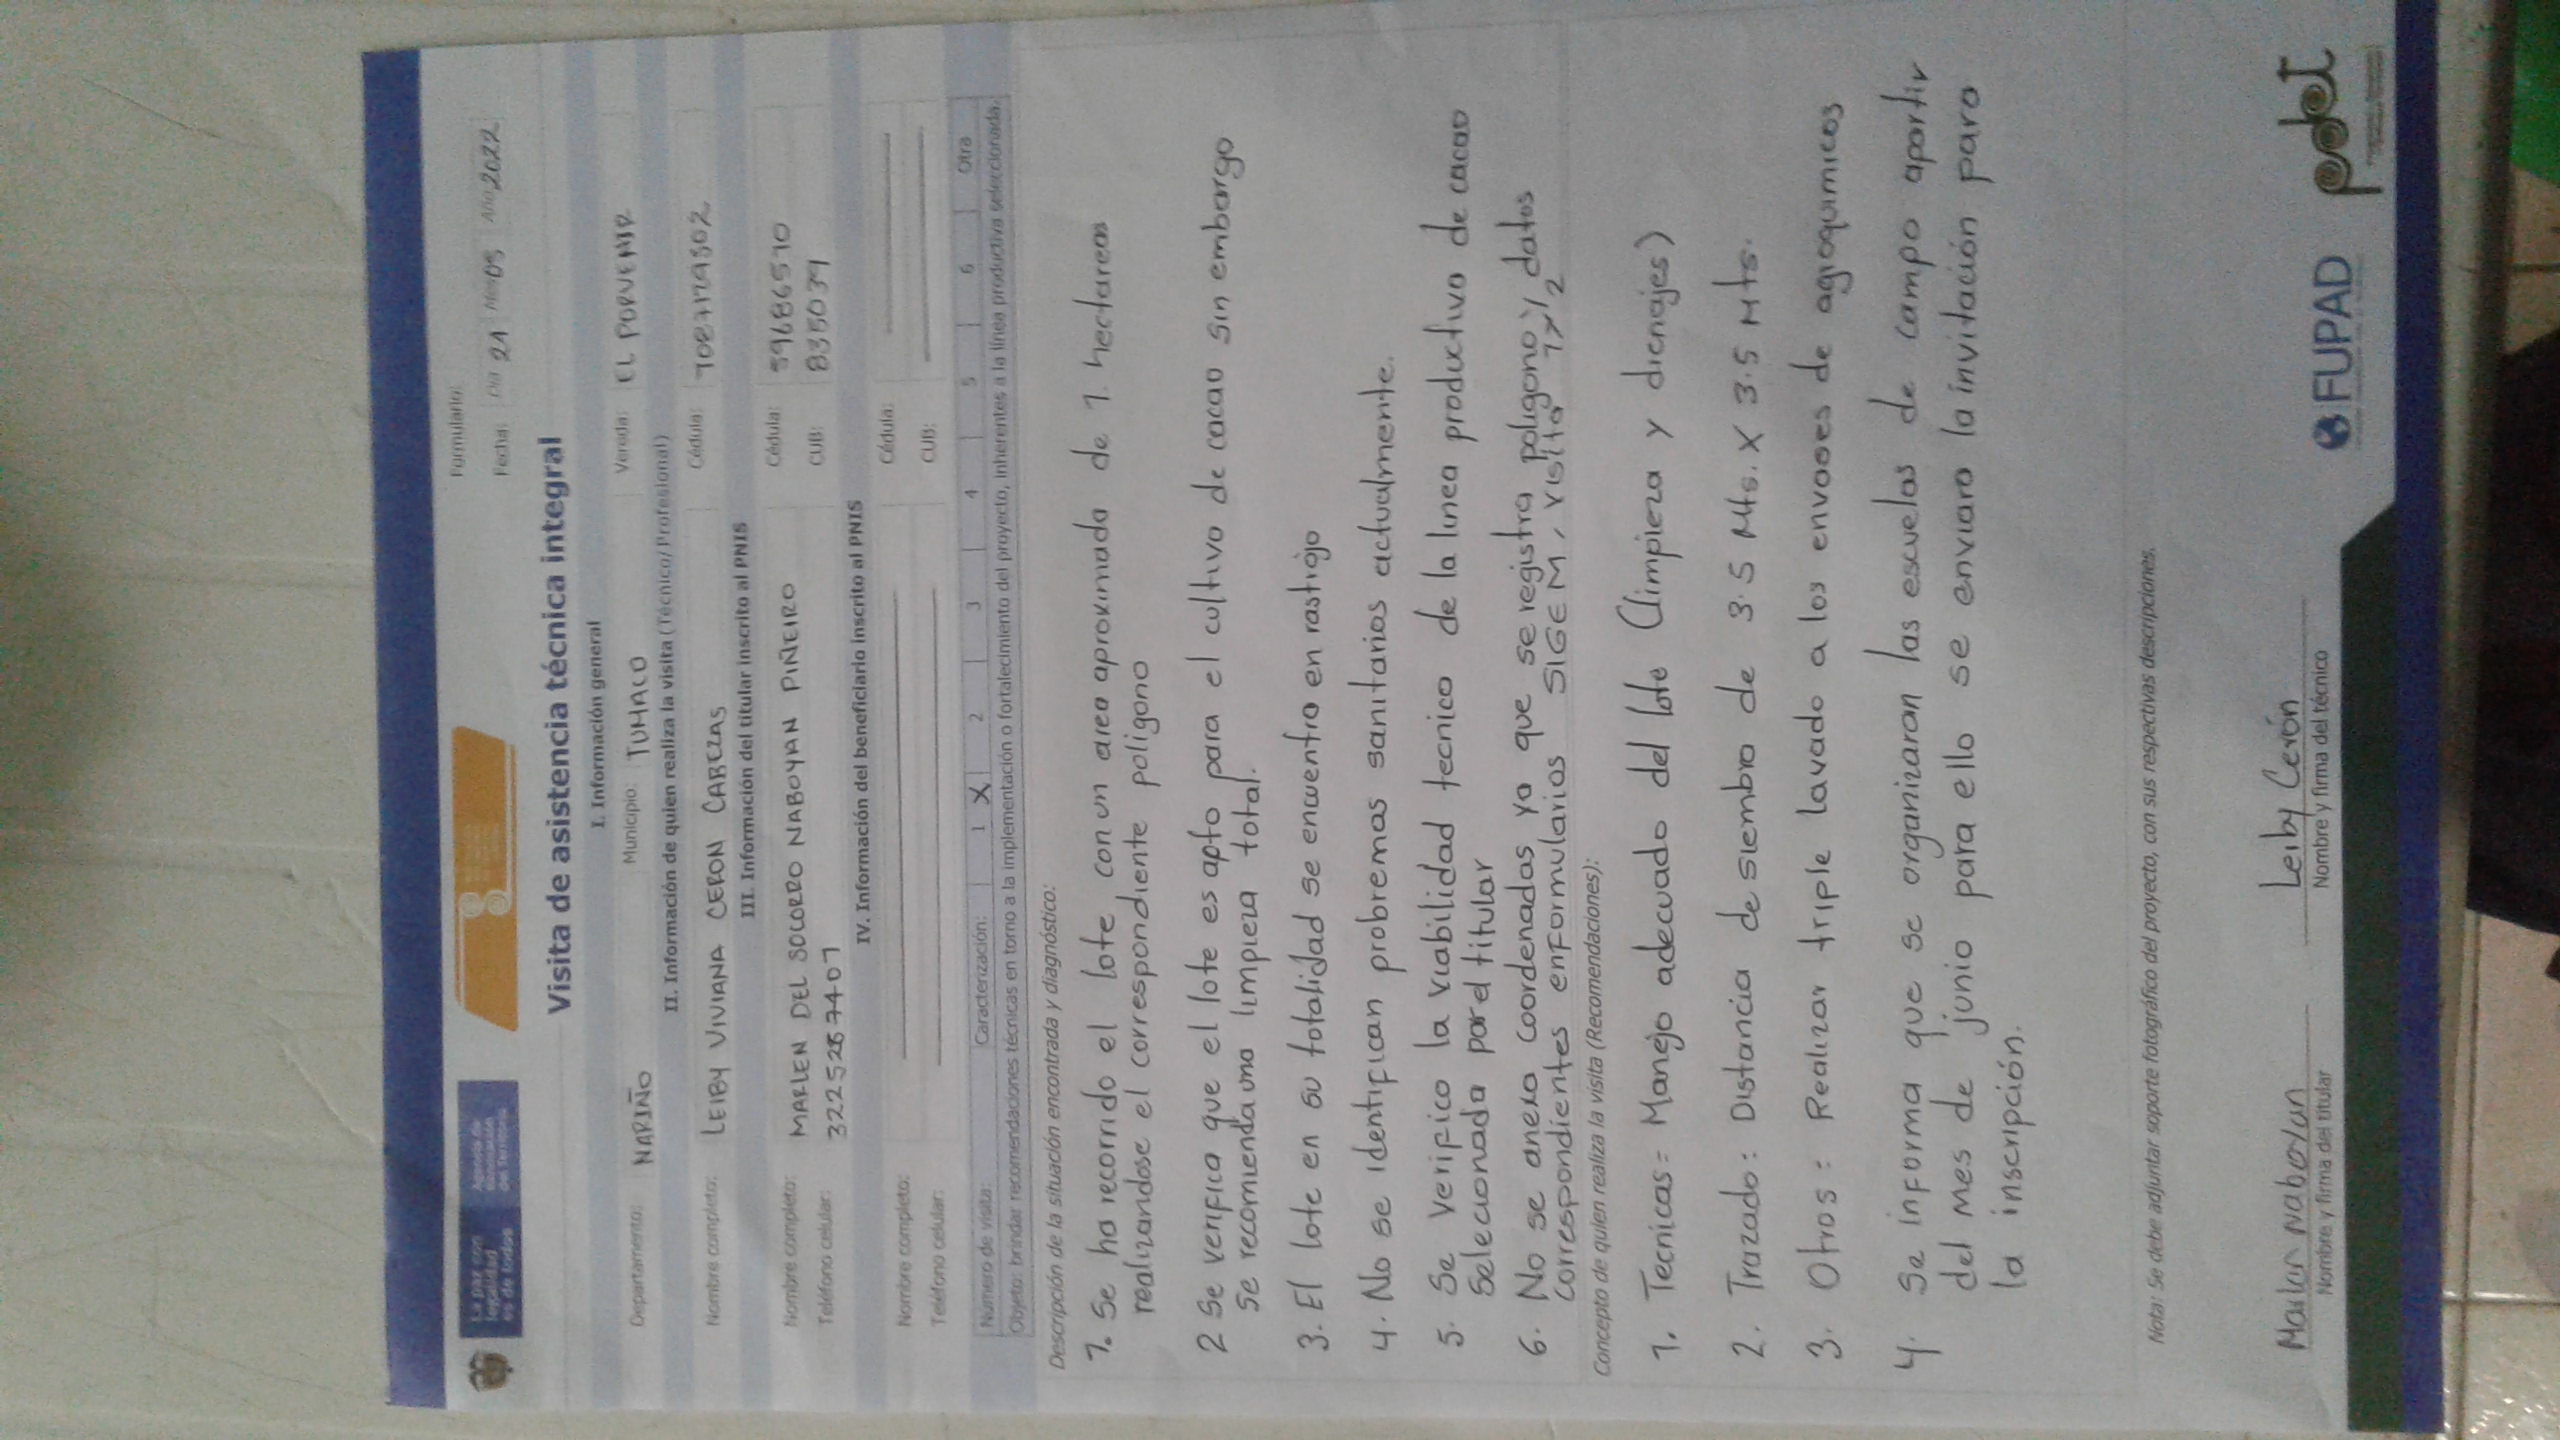 La paz con legalidad es de todos
Agencia de Renovación del Territorio
Formulario:
Fecha: Día 21 Mes 05 Año 2022
Visita de asistencia técnica integral
I. Información general
Departamento: NARIÑO Municipio: TUMACO Vereda: EL PORVENIR
II. Información de quien realiza la visita (Técnico/Profesional)
Nombre completo: LEIBY VIVIANA CERON CABEZAS Cédula:
III. Información del titular inscrito al PNIS
Nombre completo: MARLEN DEL SOCORRO NABOYAN PIÑEIRO Cédula: 59686570
Teléfono celular: CUB: 835039
IV. Información del beneficiario inscrito al PNIS
Nombre completo: Cédula:
Teléfono celular: CUB:
Número de visita: Caracterización: 1 X 2 3 4 5 6 Otra
Objeto: brindar recomendaciones técnicas en torno a la implementación o fortalecimiento del proyecto, inherentes a la línea productiva seleccionada.
Descripción de la situación encontrada y diagnóstico:
1. Se ha recorrido el lote, con un area aproximada de 1. hectareas
realizandose el correspondiente poligono
2 Se verifica que el lote es apto para el cultivo de cacao sin embargo
se recomienda una limpieza total.
3. El lote en su totalidad se encuentra en rastrojo
4. No se identifican probremas sanitarios actualmente.
5. Se verifico la viabilidad tecnico de la linea productivo de cacao
Selecionada por el titular
6. No se anexa coordenadas ya que se registra poligono y datos
correspondientes enformularios SIGEM, visita 1 y 2
Concepto de quien realiza la visita (Recomendaciones):
1. Tecnicas = Manejo adecuado del lote (limpieza y drenajes)
2. Trazado: Distancia de siembra de 3.5 Mts. X 3.5 Mts.
3. Otros: Realizar triple lavado a los envases de agroquimicos
4. Se informa que se organizaran las escuelas de campo apartir
del mes de junio para ello se enviara la invitación para
la inscripción.
Nota: Se debe adjuntar soporte fotográfico del proyecto, con sus respectivas descripciones.
Leiby Cerón
Nombre y firma del titular Nombre y firma del técnico
FUPAD
pdet